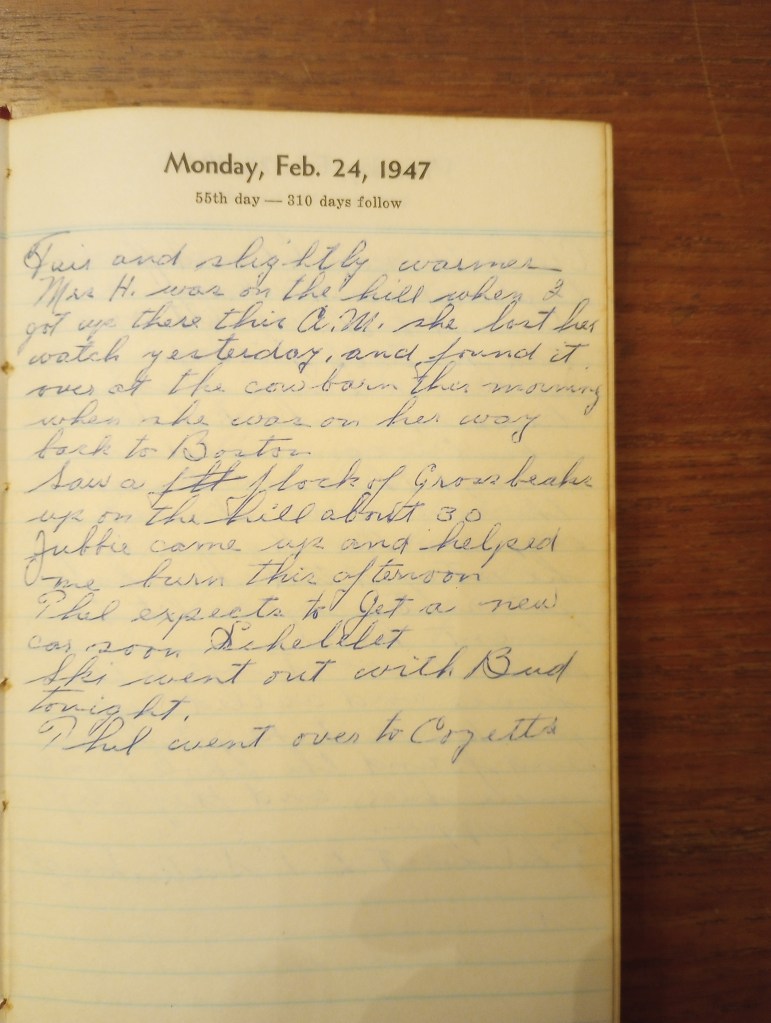 Monday, Feb. 24, 1947
55th day — 310 days follow
Fair and slightly warmer
Mrs H. was on the hill when I
got up there this A.M. she lost her
watch yesterday, and found it
over at the cow barn this morning
when she was on her way
back to Boston
Saw a flock of Grosbeaks
up on the hill about 30
came up and helped
me burn this afternoon
Phil expects to get a new
car soon
Ski went out with Bud
tonight.
Phil went over to